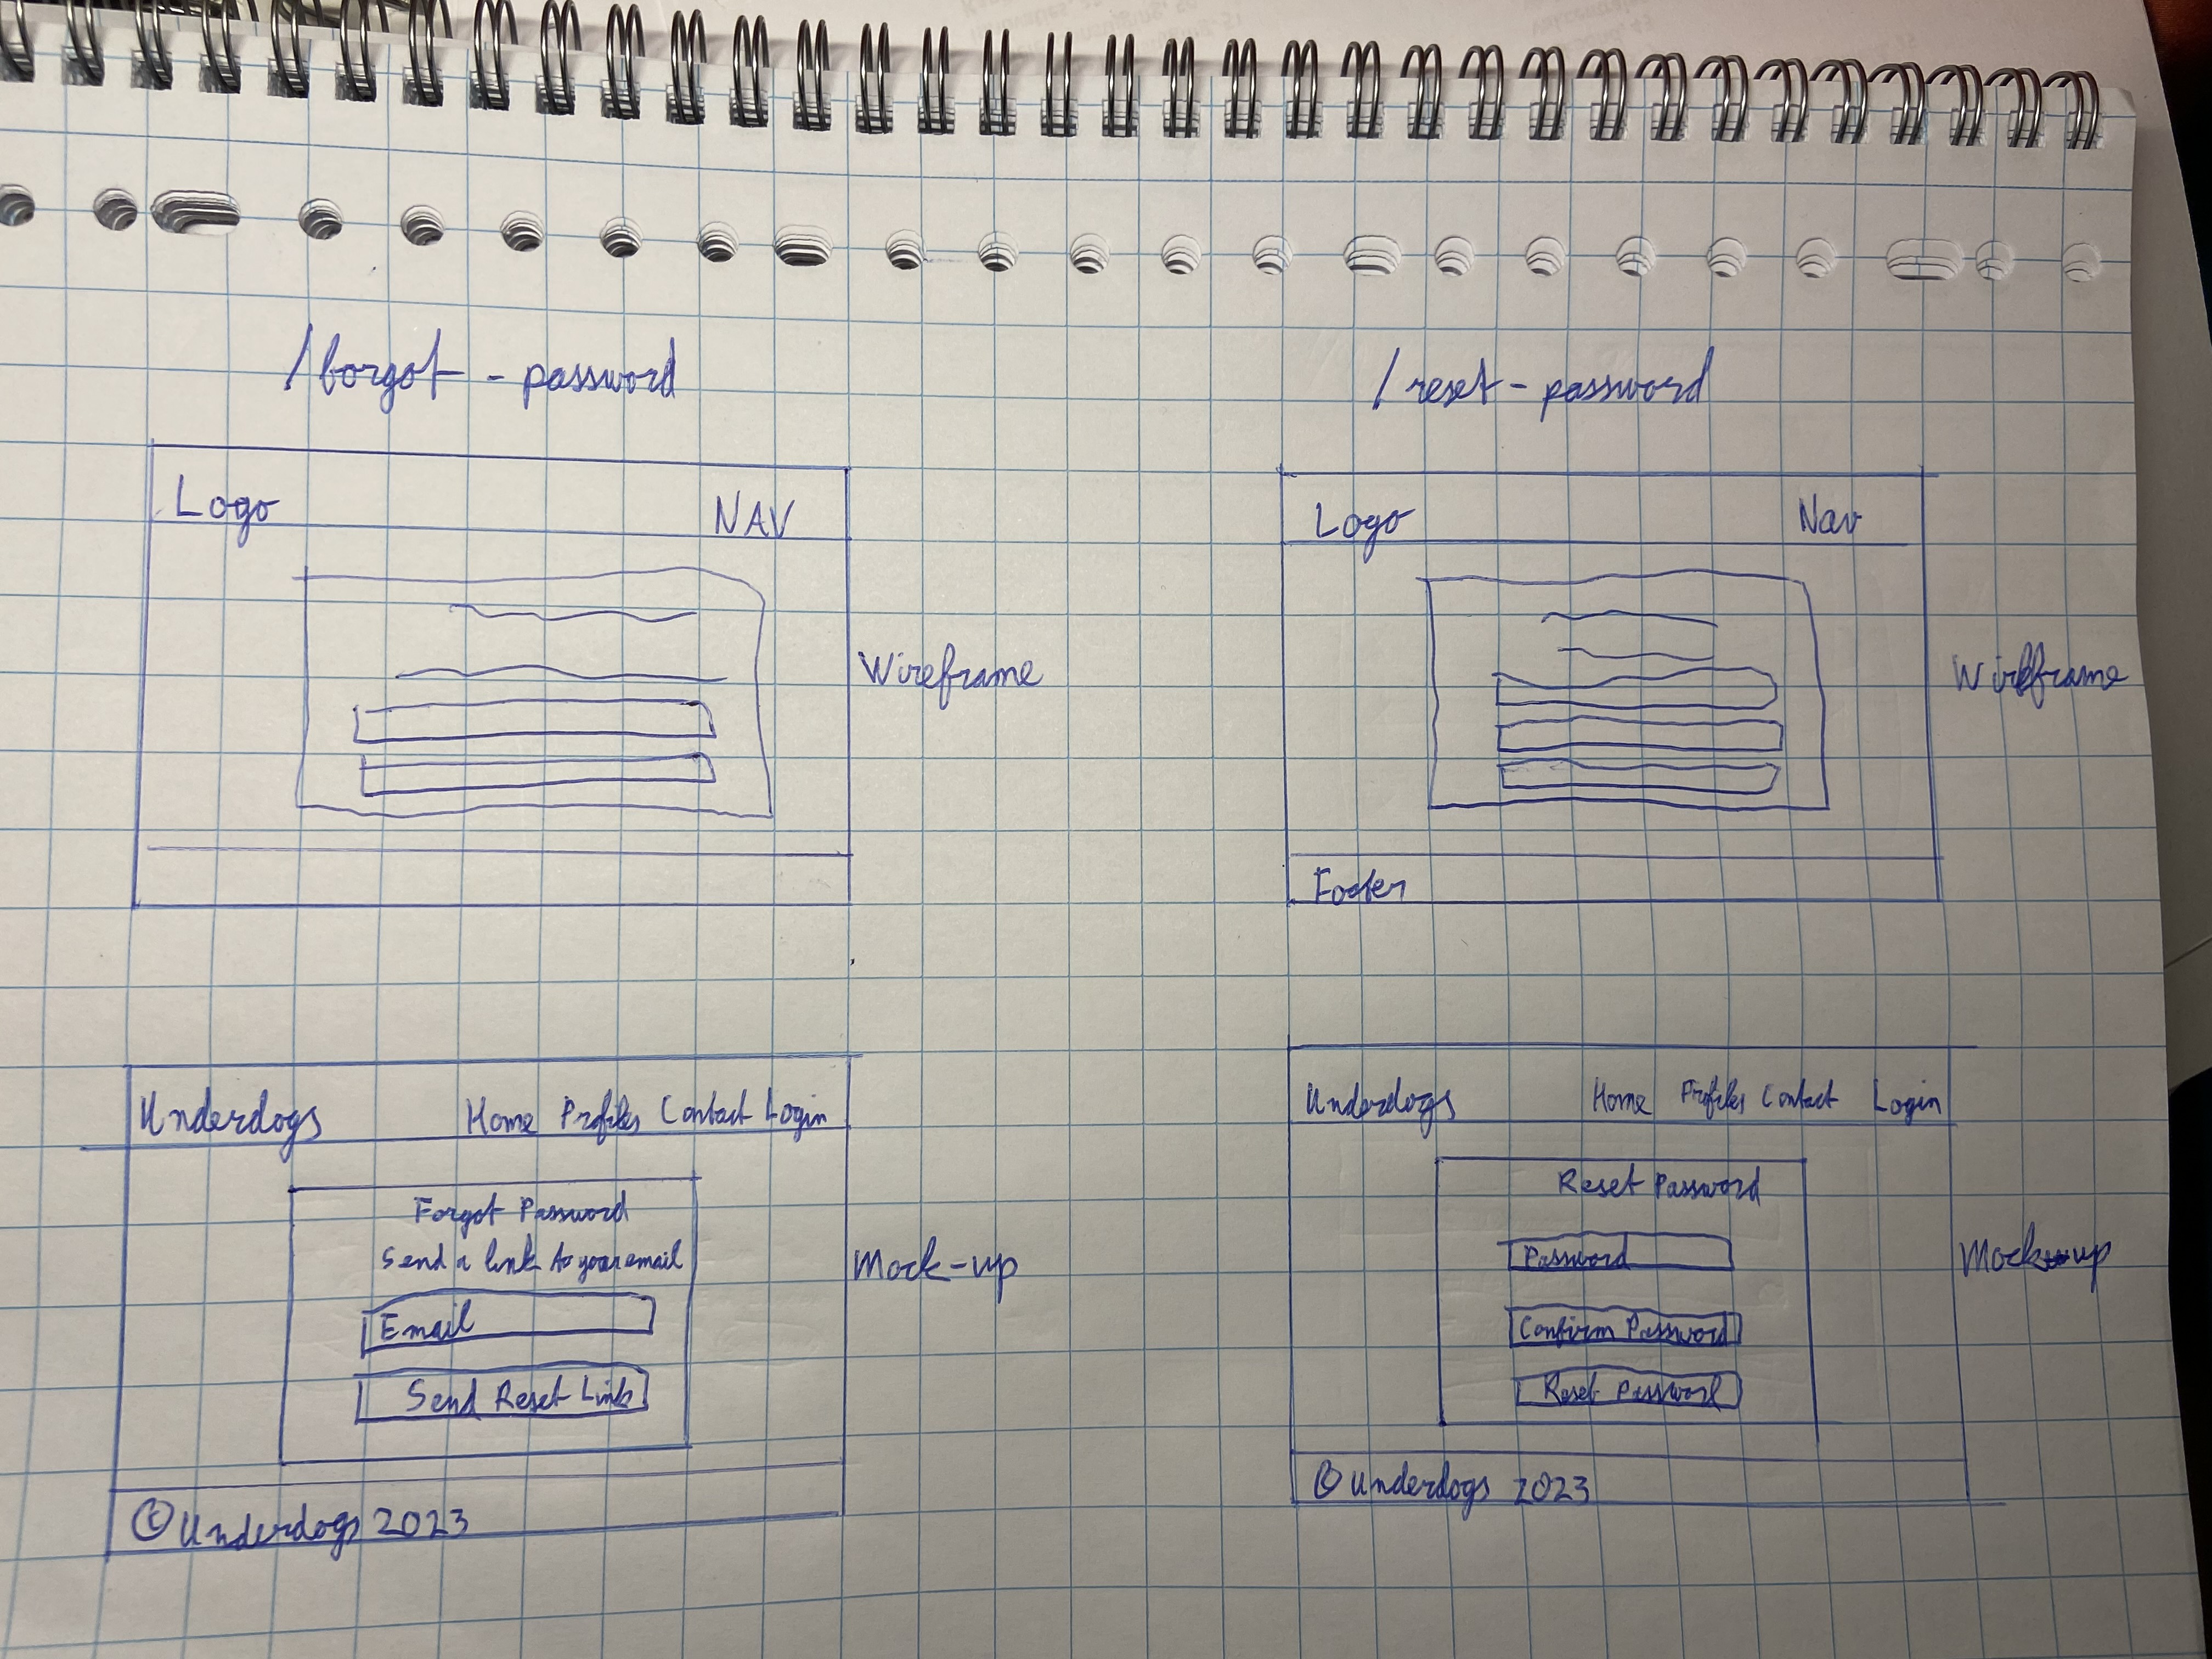 /forgot-password
Logo NAV
Wireframe
Underdogs Home Profiles Contact Login
Forgot Password
Send a link to your email
Email
Send Reset Link
© Underdogs 2023
Mock-up
/reset-password
Logo Nav
Footer
Wireframe
Underdogs Home Profiles Contact Login
Reset Password
Password
Confirm Password
Reset Password
© Underdogs 2023
Mock-up